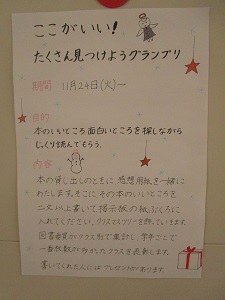 ここがいい!
たくさん見つけようグランプリ
期間 11月24日(火)〜
目的
本のいいところ、面白いところを探しながら
じっくり読んでもらう。
内容
本の貸し出しのときに、感想用紙を一緒に
わたします。そこに、その本のいいところを
二文以上書いて掲示板の紙ぶくろに
入れてください。クリスマスツリーを飾っていきます。
図書委員がクラス別で集計し、学年ごとで
一番枚数が多かったクラスを表彰します。
書いてくれた人にはプレゼントがあります。